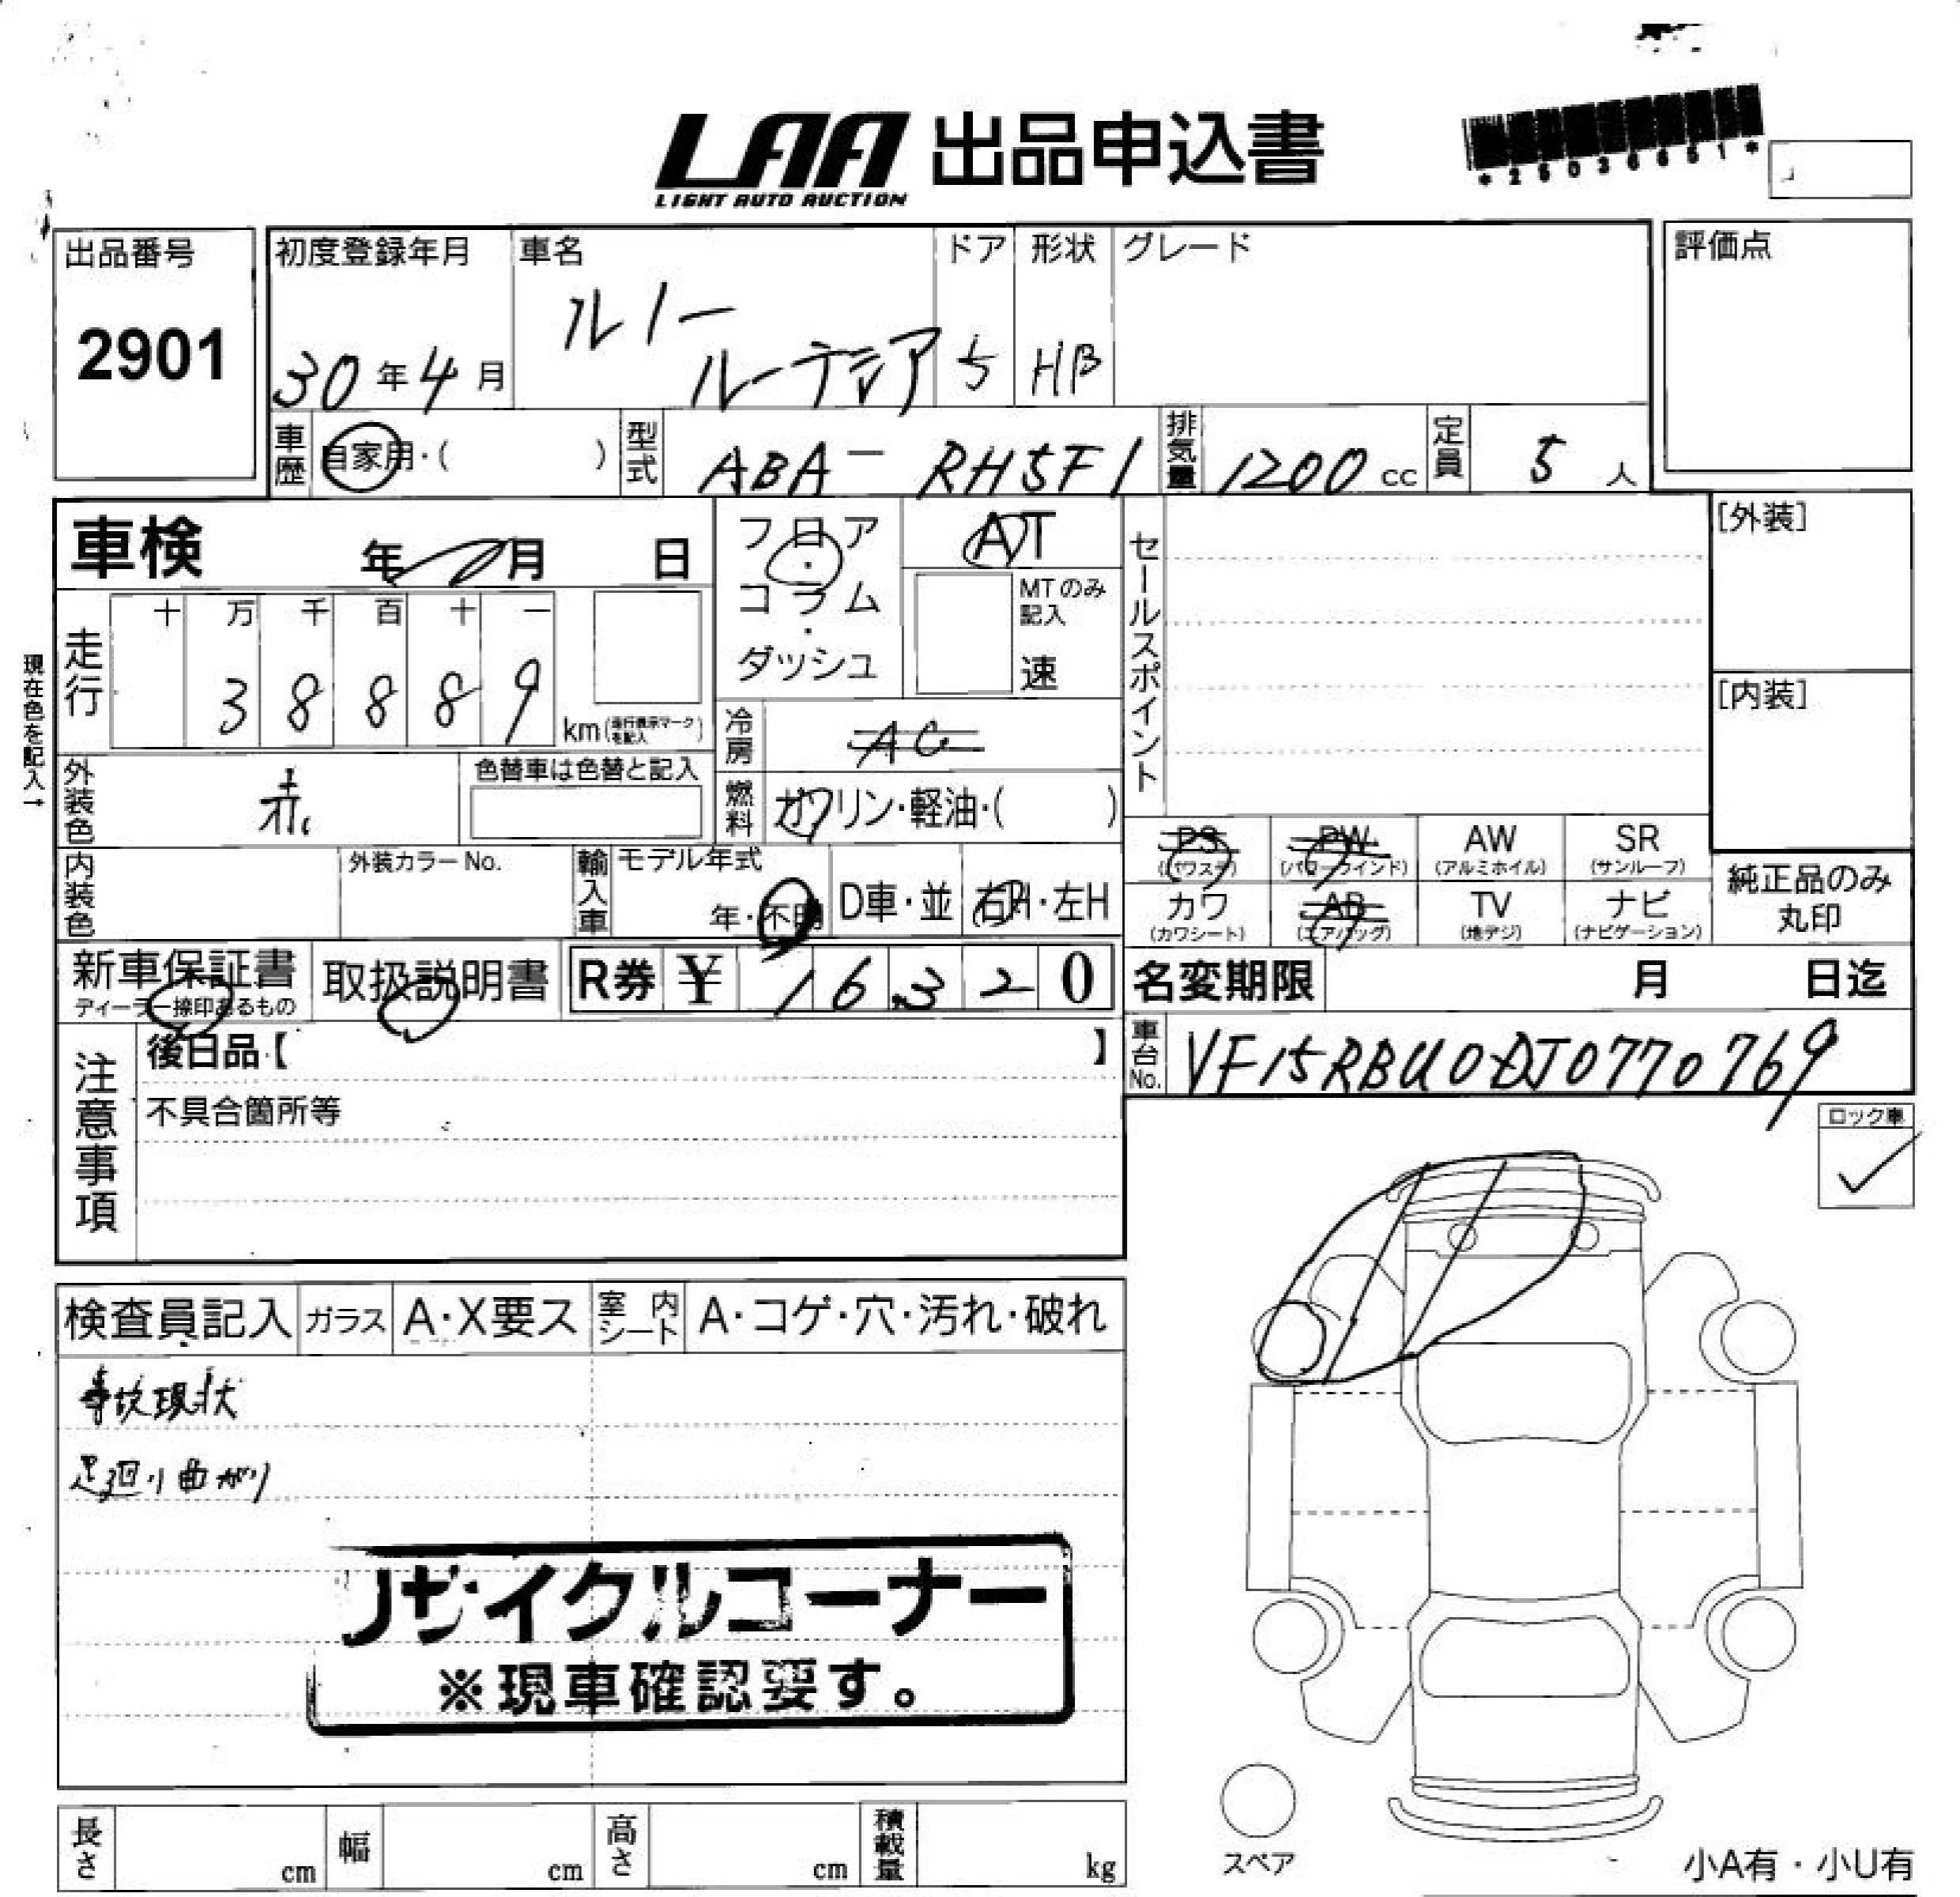 LAA 出品申込書
LIGHT AUTO AUCTION
*26030651*
出品番号
2901
初度登録年月
30年4月
車名
ルノー
ルーテシア
ドア
5
形状
HB
グレード
評価点
車歴 自家用・( )
型式 ABA-RH5F1
排気量 1200cc
定員 5人
車検 年 月 日
フロア・コラム・ダッシュ
AT
MTのみ記入
速
セールスポイント
[外装]
現在色を記入→
走行
十 万 千 百 十 一
3 8 8 8 9
km(走行表示マークを記入)
[内装]
冷房 AC
外装色 赤
色替車は色替と記入
燃料 ガソリン・軽油・( )
PS (パワステ)
PW (パワーウインド)
AW (アルミホイル)
SR (サンルーフ)
カワ (カワシート)
AB (エアバッグ)
TV (地デジ)
ナビ (ナビゲーション)
純正品のみ丸印
内装色
外装カラーNo.
輸入車
モデル年式
年・不明
D車・並
右H・左H
新車保証書
ディーラー捺印あるもの
取扱説明書
R券 ¥ 16,320
名変期限 月 日迄
車台No. VF15RBU0DJ0770769
注意事項
後日品【 】
不具合箇所等
ロック車
✓
検査員記入
ガラス A・X要ス
室内シート A・コゲ・穴・汚れ・破れ
事故現状
足廻り曲がり
リサイクルコーナー
※現車確認要す。
長さ cm
幅 cm
高さ cm
積載量 kg
スペア
小A有・小U有